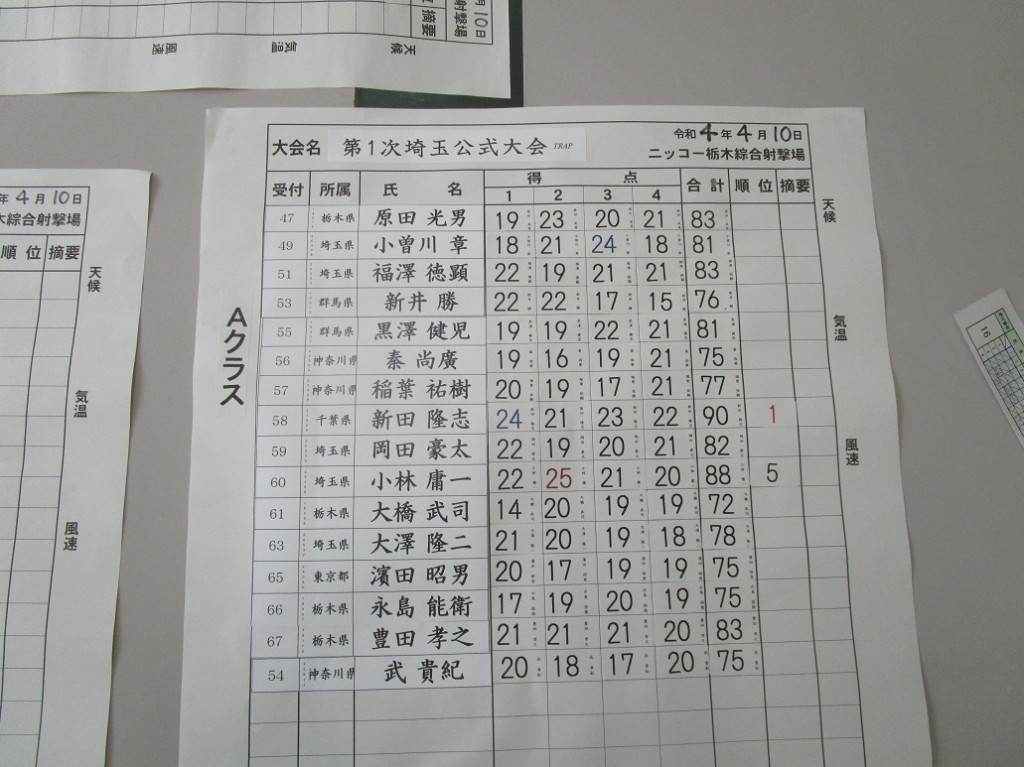 月10日
射撃場
摘要
天候
気温
風速
年4月10日
木綜合射撃場
順位 摘要
天候
気温
風速
16
大会名 第1次埼玉公式大会 TRAP 令和4年4月10日
ニッコー栃木綜合射撃場
受付 所属 氏名 得点 合計 順位 摘要
1 2 3 4
47 栃木県 原田 光男 19 23 20 21 83
49 埼玉県 小曽川 章 18 21 24 18 81
51 埼玉県 福澤 徳顕 22 19 21 21 83
53 群馬県 新井 勝 22 22 17 15 76
55 群馬県 黒澤 健児 19 19 22 21 81
56 神奈川県 秦 尚廣 19 16 19 21 75
57 神奈川県 稲葉 祐樹 20 19 17 21 77
58 千葉県 新田 隆志 24 21 23 22 90 1
59 埼玉県 岡田 豪太 22 19 20 21 82
60 埼玉県 小林 庸一 22 25 21 20 88 5
61 栃木県 大橋 武司 14 20 19 19 72
63 埼玉県 大澤 隆二 21 20 19 18 78
65 東京都 濱田 昭男 20 17 19 19 75
66 栃木県 永島 能衛 17 19 20 19 75
67 栃木県 豊田 孝之 21 21 21 20 83
54 神奈川県 武 貴紀 20 18 17 20 75
Aクラス
天候
気温
風速